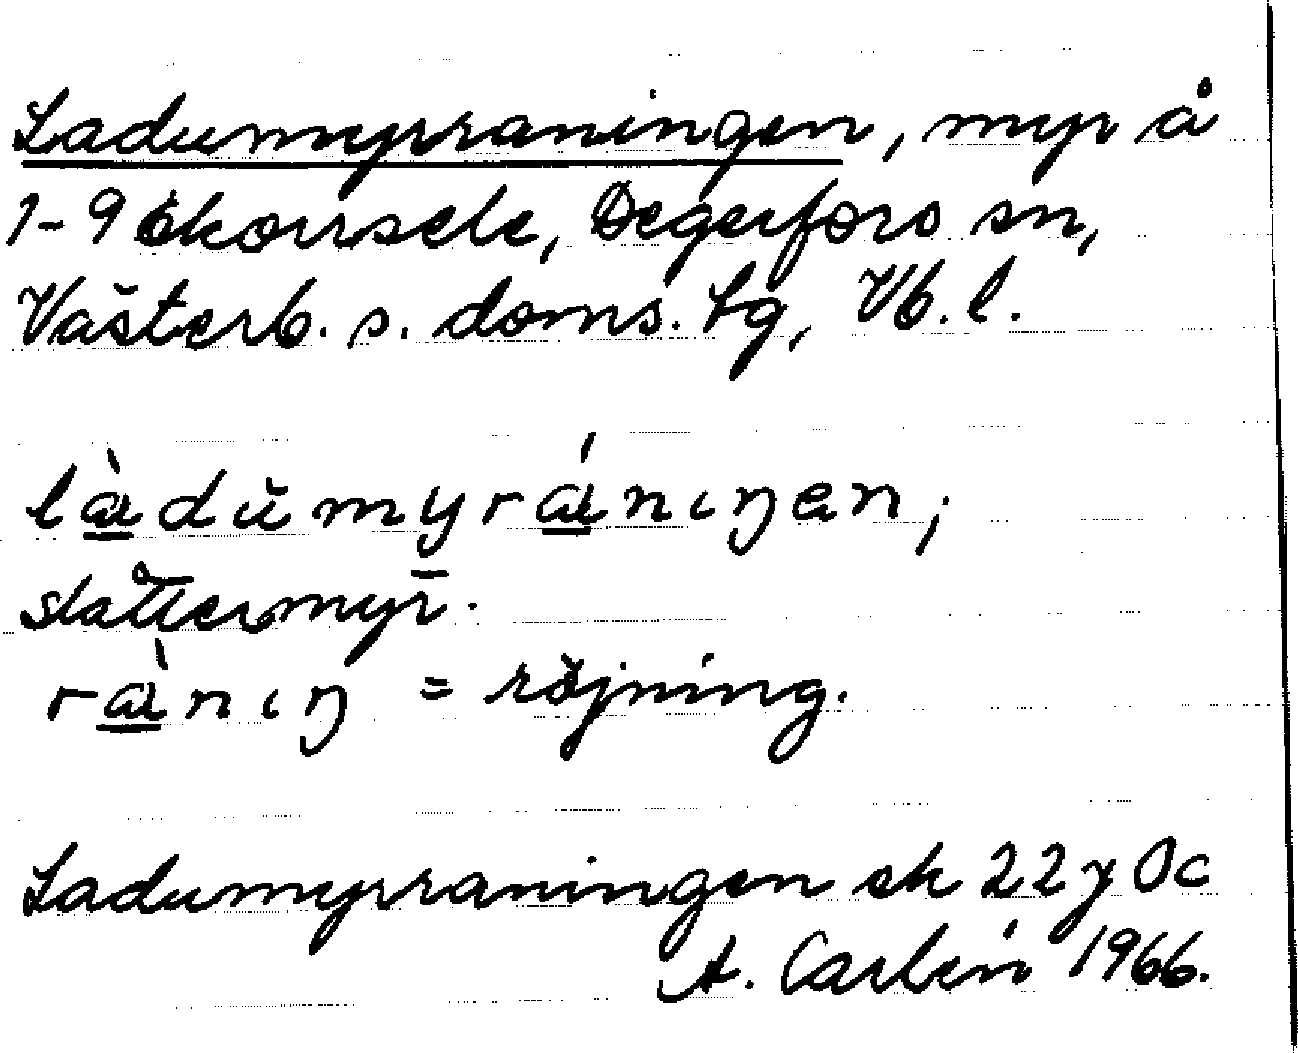 Ladumyrraningen, myr å
1-9 Ekorrsele, Degerfors sn,
Västerb. s. doms. tg, Vb. l.
là̱dŭmyrá̱nıŋen;
slåttermyr̄.
rà̱nıŋ = röjning.
Ladumyrraningen ek 22 y 0c
A. Carlén 1966.